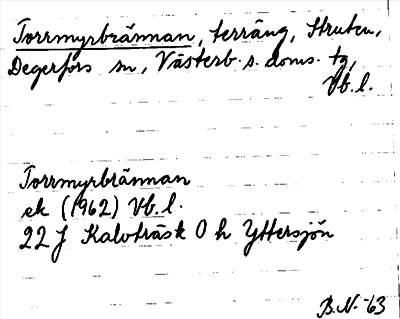 Torrmyrbrännan, terräng, Struten,
Degerfors sn, Västerb. s. doms. tg,
Vb. l.
Torrmyrbrännan
ek (1962) Vb. l.
22 J Kalvträsk O h Yttersjön
B.N. -63